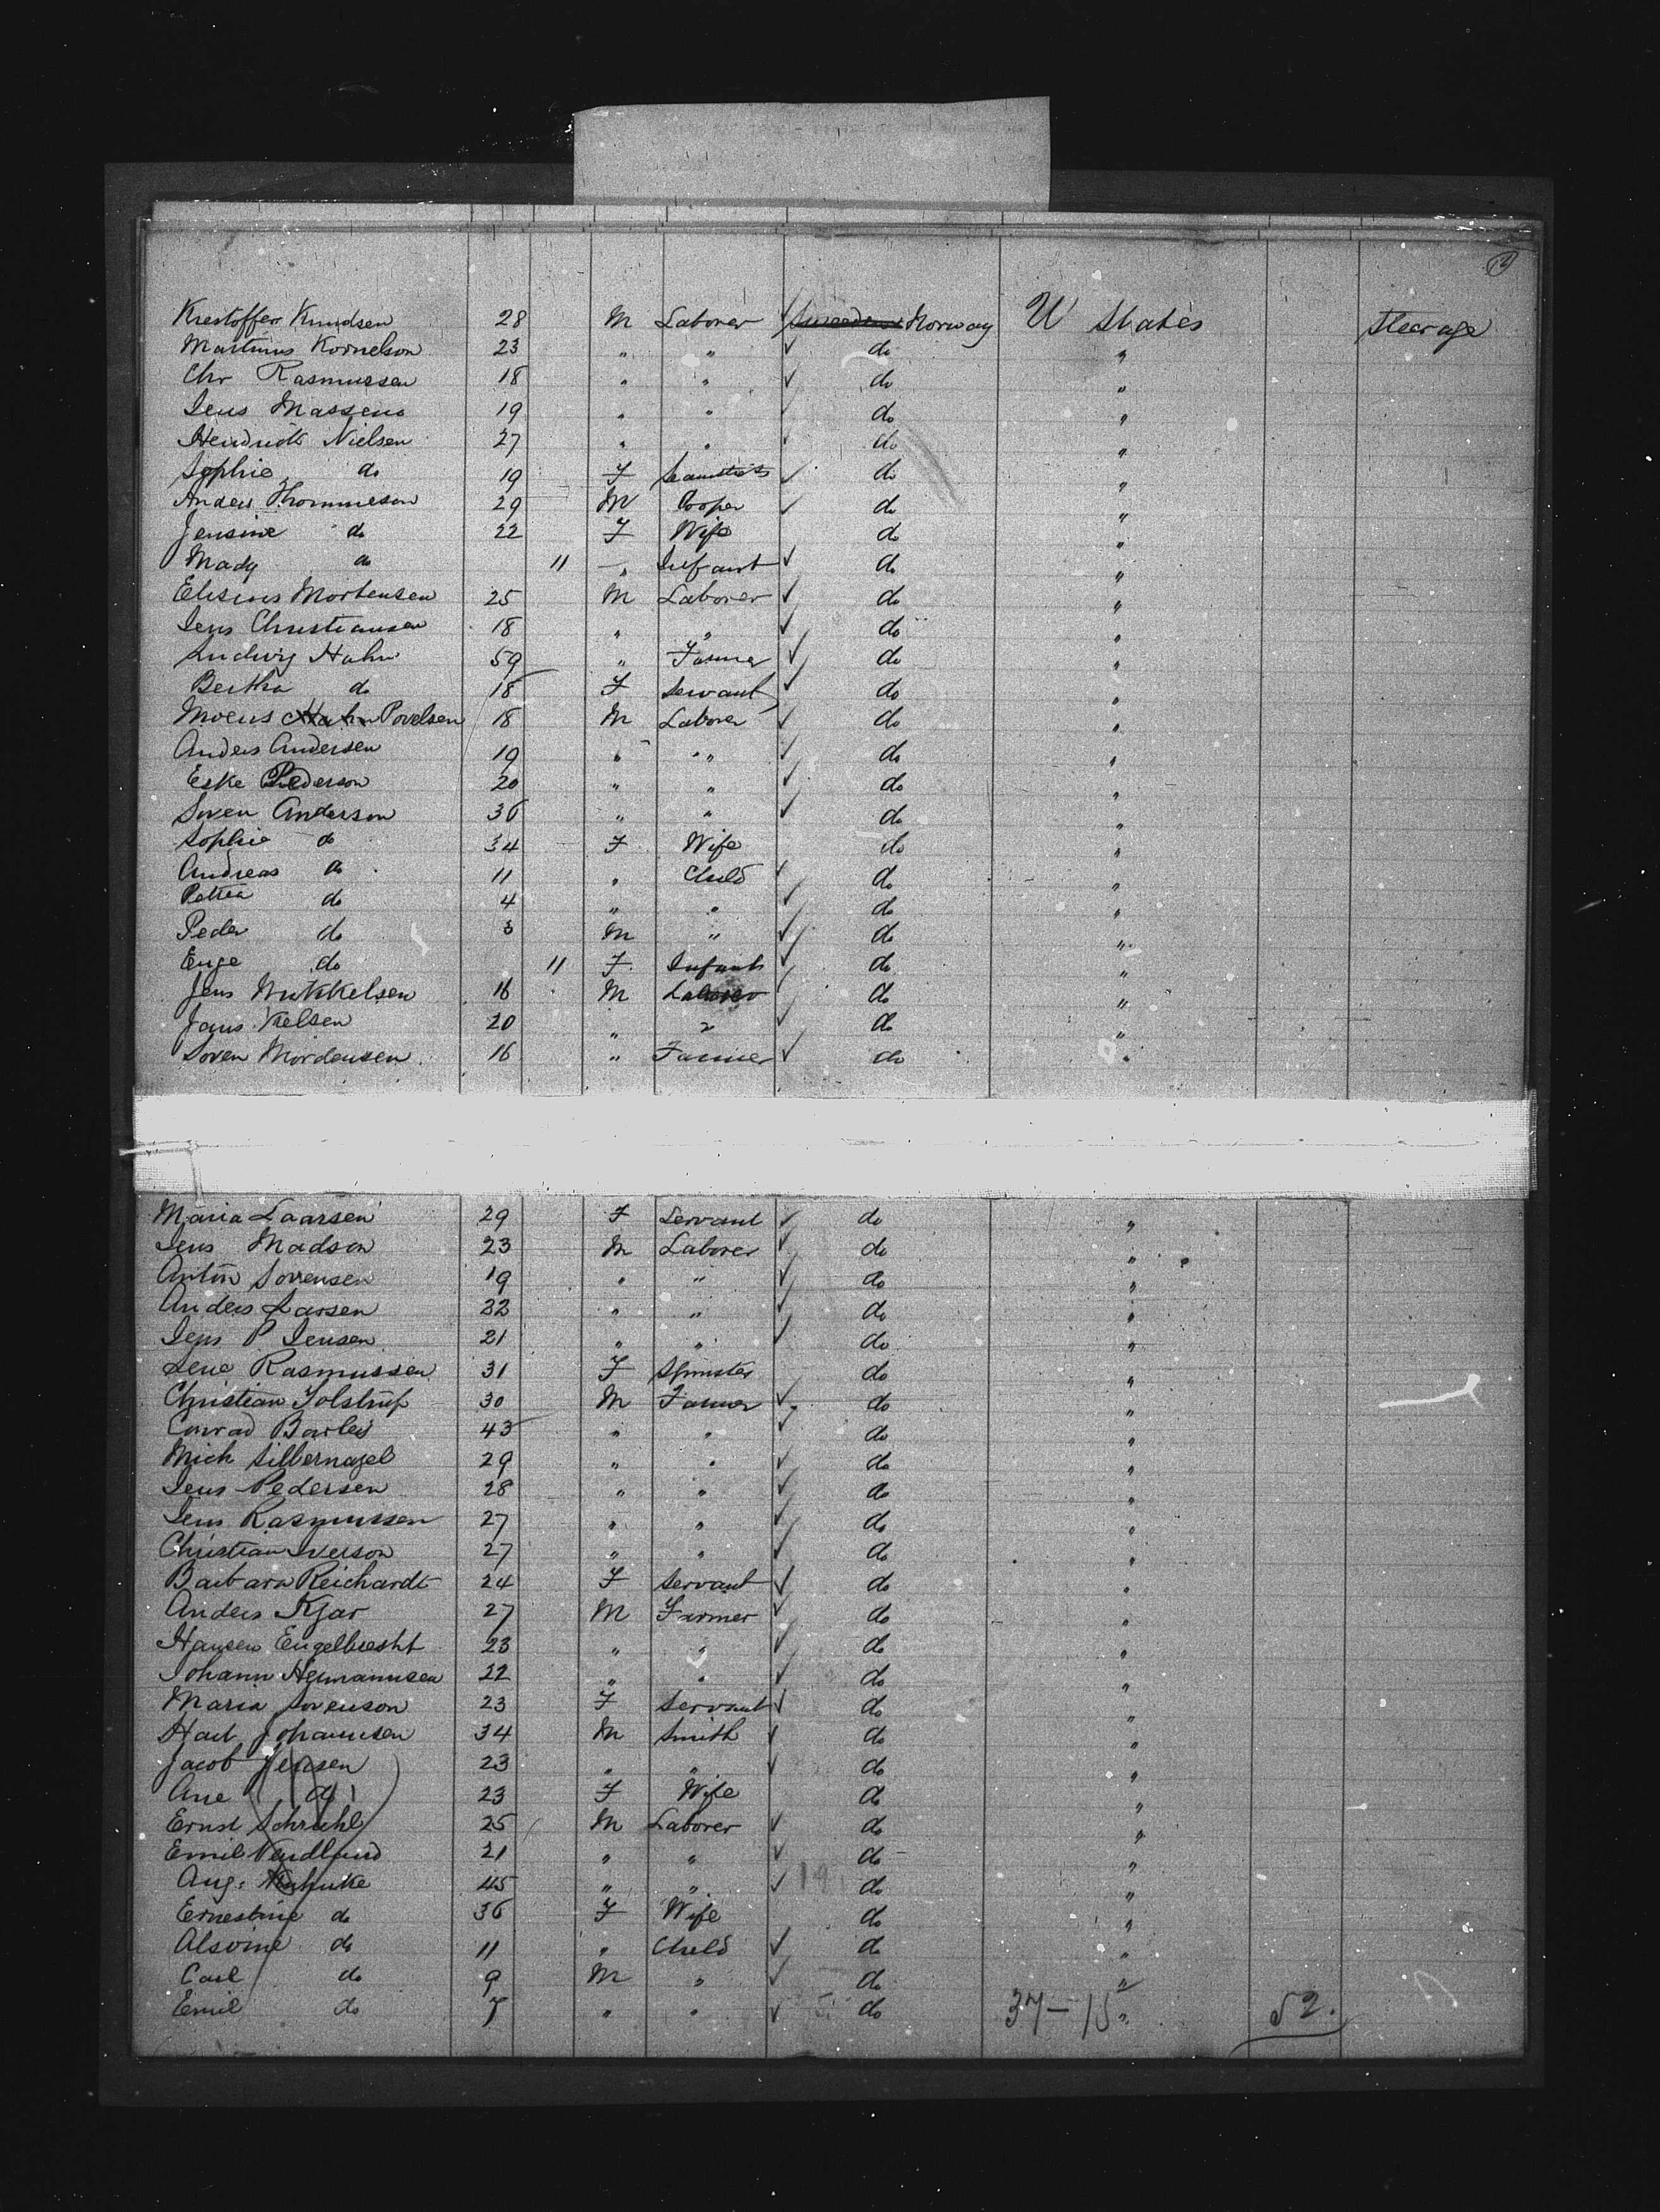 14
Krestoffer Knudsen 28 M Laborer Sweden Norway U States Steerage
Martinus Kornelson 23 " " do "
Chr Rasmussen 18 " " do "
Jens Massens 19 " " do "
Hendrick Nielsen 27 " " do "
Sophie do 19 F Seamstress do "
Anders Thommeson 29 M Cooper do "
Jensine do 22 F Wife do "
Mady do 11 " Infant do "
Elisius Mortensen 25 M Laborer do "
Jens Christiansen 18 " " do "
Ludwig Hahn 59 " Farmer do "
Bertha do 18 F Servant do "
Moens Hahn Povelsen 18 M Laborer do "
Anders Andersen 19 " " do "
Eske Pederson 20 " " do "
Soren Anderson 36 " " do "
Sophie do 34 F Wife do "
Andreas do 11 " Child do "
Petrea do 4 " " do "
Peder do 3 M " do "
Enge do 11 F Infant do "
Jens Mikkelsen 16 M Laborer do "
Jans Kelsen 20 " " do "
Soren Mordensen 16 " Farmer do "
Maria Laarsen 29 F Servant do "
Jens Madson 23 M Laborer do "
Anton Sorensen 19 " " do "
Anders Larsen 32 " " do "
Jens P Jensen 21 " " do "
Lene Rasmussen 31 F Spinster do "
Christian Tolstrup 30 M Farmer do "
Conrad Barleis 43 " " do "
Mich Silbernagel 29 " " do "
Jens Pedersen 28 " " do "
Jens Rasmussen 27 " " do "
Christian Iverson 27 " " do "
Barbara Reichardt 24 F Servant do "
Anders Kjar 27 M Farmer do "
Hansen Engelbrecht 23 " " do "
Johann Hermannsen 22 " " do "
Maria Sorenson 23 F Servant do "
Hart Johannsen 34 M Smith do "
Jacob Jensen 23 " " do "
Ane do 23 F Wife do "
Ernst Schruhl 25 M Laborer do "
Emil Vendlund 21 " " do "
Aug. 45 " " do "
Ernestine do 36 F Wife do "
Alsvine do 11 " Child do "
Carl do 9 M " do "
Emil do 7 " " do 37-15 " 52.